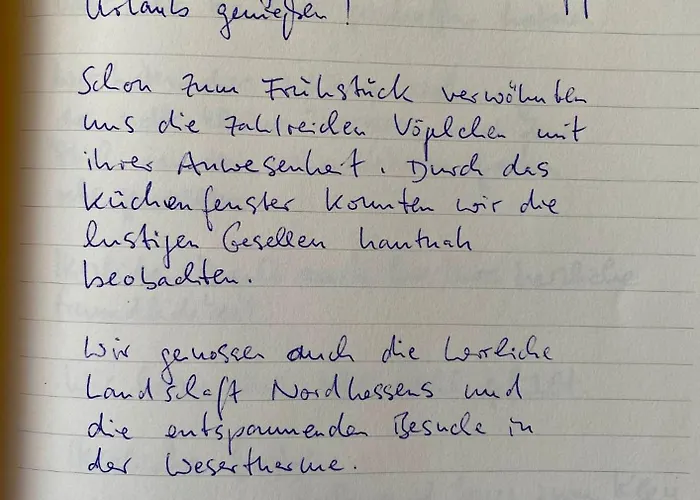 Urlaubs genießen!
Schon zum Frühstück verwöhnten
uns die zahlreichen Vögelchen mit
ihrer Anwesenheit. Durch das
Küchenfenster konnten wir die
lustigen Gesellen hautnah
beobachten.
Wir genossen auch die herrliche
Landschaft Nordhessens und
die entspannenden Besuche in
der Wesertherme.